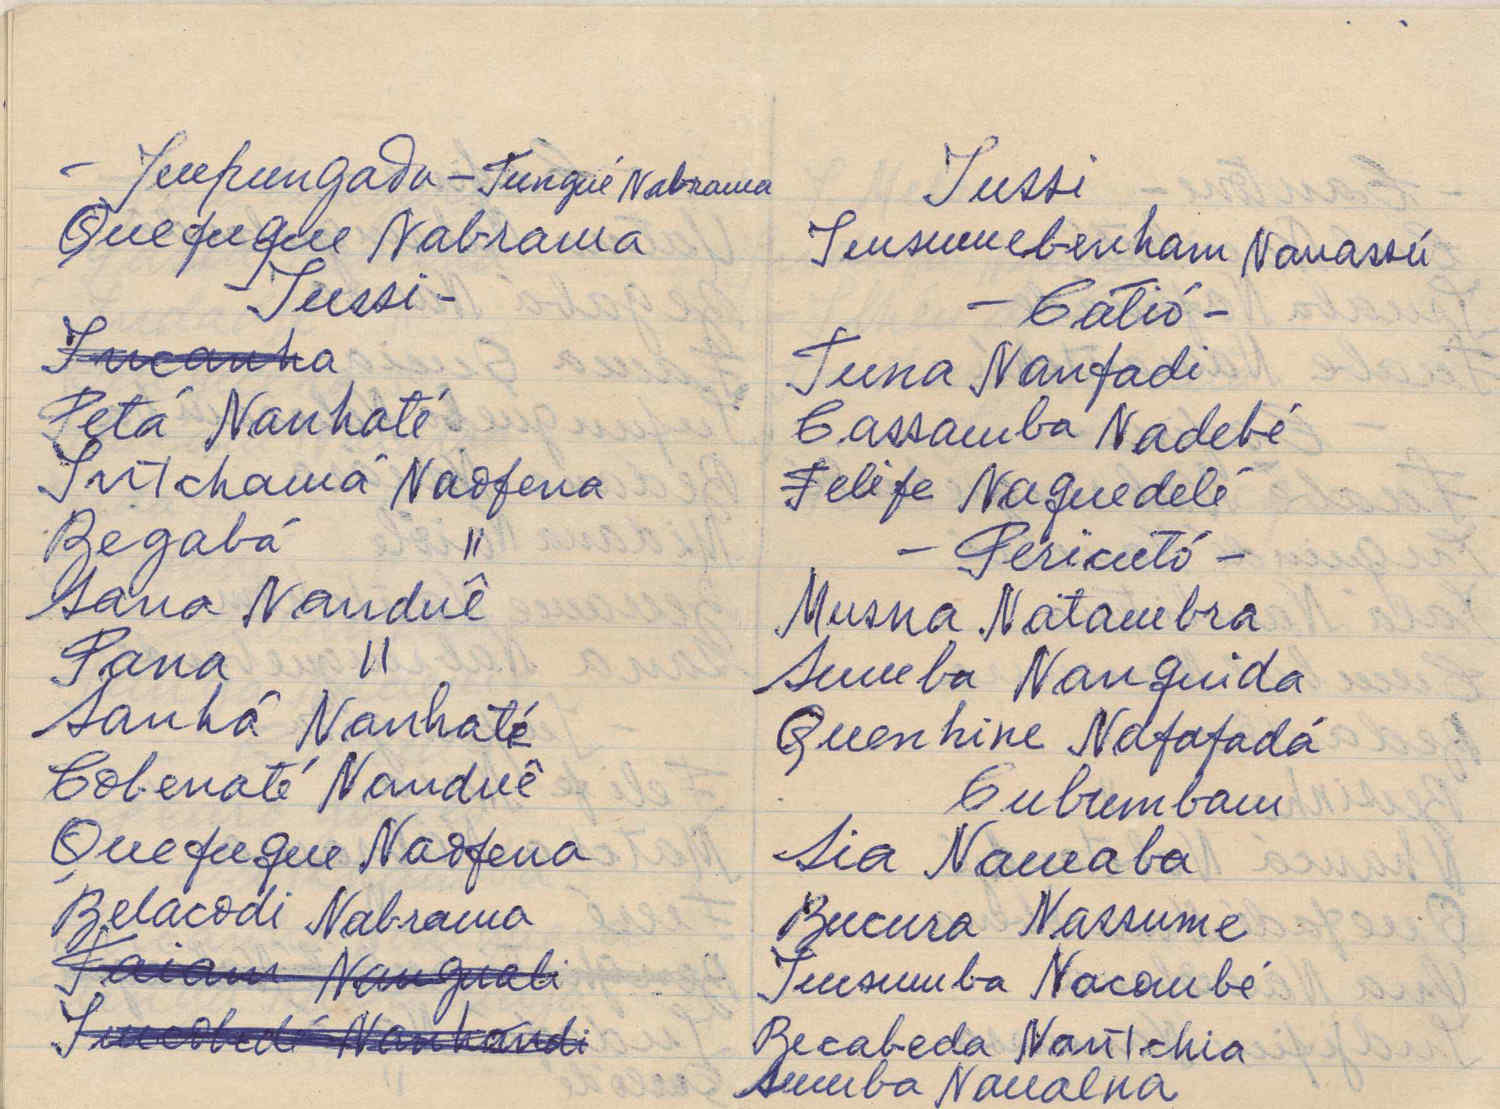 - Impungada - Tungué Nabrama
Quefugue Nabrama
Tussi -
Incanha
Petá Nanhaté
Initchamá Naofena
Begabá "
Sana Nanduê
Pana "
Sanhá Nanhaté
Cobenaté Nanduê
Quefugue Naofena
Belacodi Nabrama
Faiam Nanguali
Incobedé Nanhandi
Tussi
Insumebenham Nanassú
- Catió -
Tuna Nanfadi
Cassamba Nadebé
Felife Naguedelé
- Pericutó -
Musna Natambra
Sumba Nanguida
Quenhine Nafafadá
Cubumbam
Sia Namaba
Bucura Nassume
Insumba Nacombé
Becabeda Nantchia
Sumba Nanalna